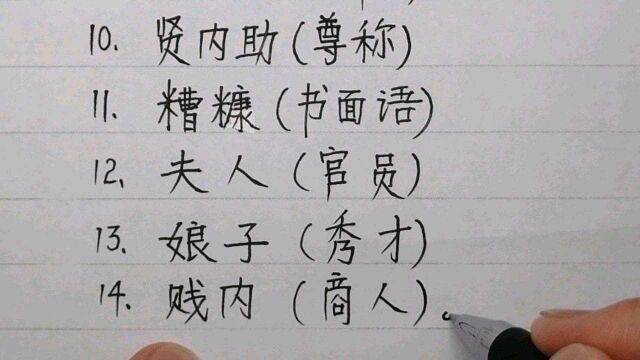 10. 贤内助(尊称)
11. 糟糠(书面语)
12. 夫人(官员)
13. 娘子(秀才)
14. 贱内(商人)。